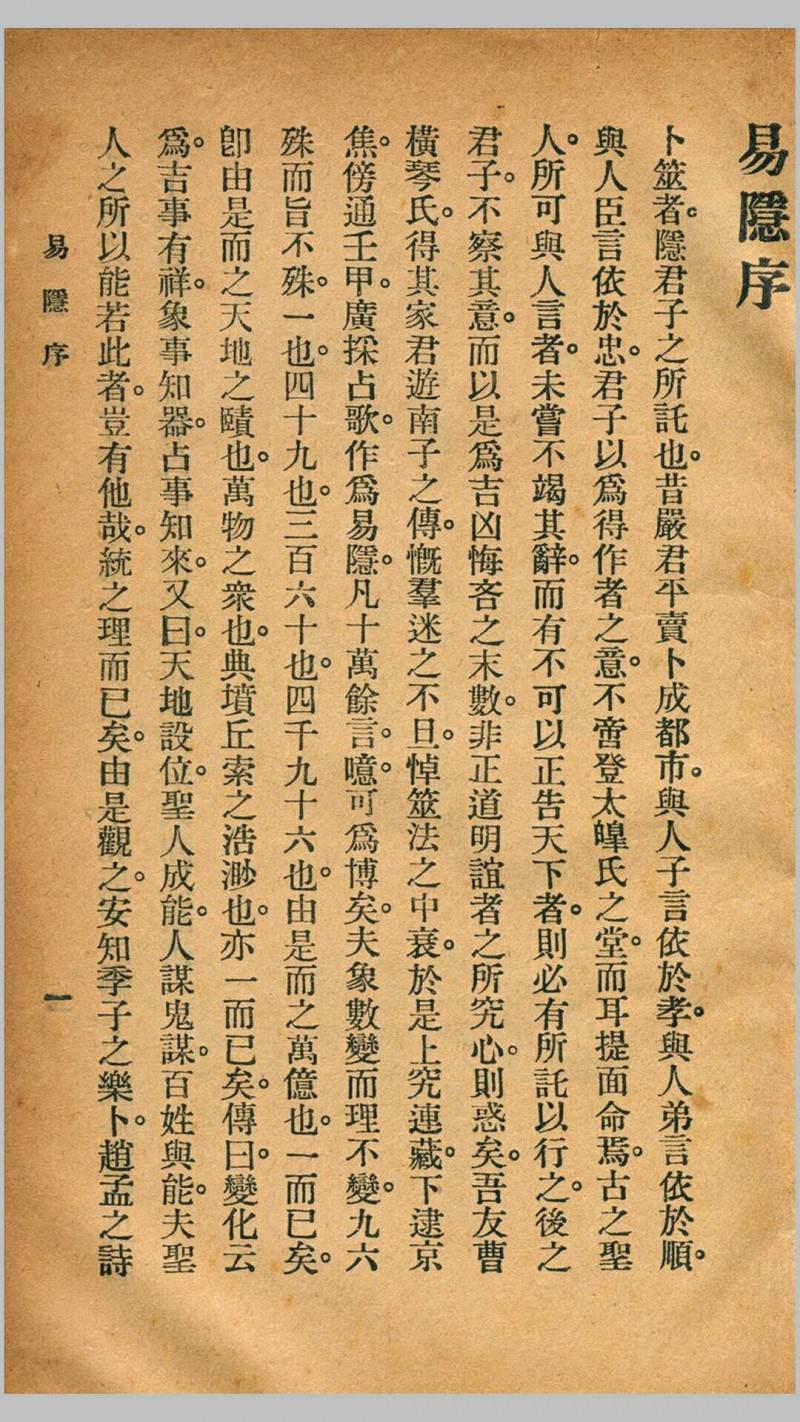 易隱序
卜筮者。隱君子之所託也。昔嚴君平賣卜成都市。與人子言依於孝。與人弟言依於順。
與人臣言依於忠。君子以爲得作者之意。不啻登太皡氏之堂。而耳提面命焉。古之聖
人。所可與人言者。未嘗不竭其辭。而有不可以正告天下者。則必有所託以行之。後之
君子。不察其意。而以是爲吉凶悔吝之末數。非正道明誼者之所究心。則惑矣。吾友曹
橫琴氏。得其家君遊南子之傳。慨羣迷之不旦。悼筮法之中衰。於是上究連藏。下逮京
焦。傍通壬甲。廣採占歌。作爲易隱。凡十萬餘言。噫。可爲博矣。夫象數變而理不變。九六
殊而旨不殊。一也。四十九也。三百六十也。四千九十六也。由是而之萬億也。一而已矣。
卽由是而之天地之賾也。萬物之衆也。典墳丘索之浩渺也。亦一而已矣。傳曰。變化云
爲。吉事有祥。象事知器。占事知來。又曰。天地設位。聖人成能。人謀鬼謀。百姓與能。夫聖
人之所以能若此者。豈有他哉。統之理而已矣。由是觀之。安知季子之樂卜。趙孟之詩
易隱序
一